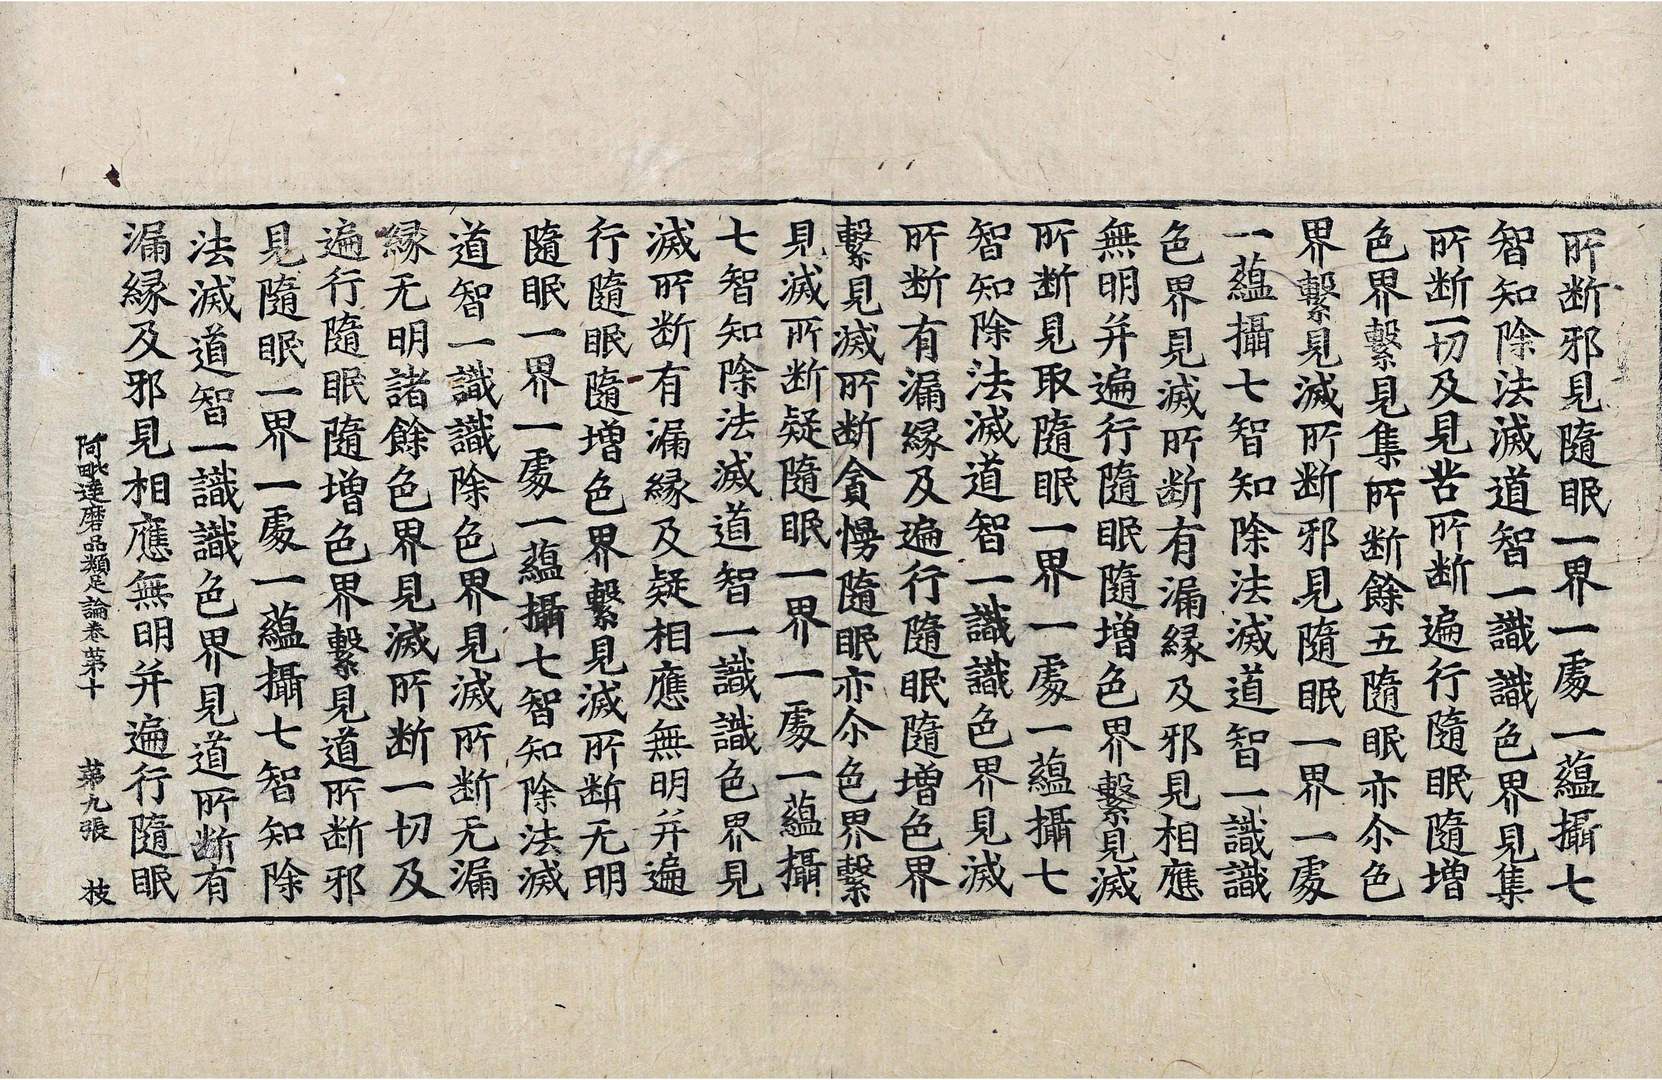 所断邪見隨眠一界一處一蘊攝七
智知除法滅道智一識識色界見集
所断一切及見苦所断遍行隨眠隨增
色界繫見集所断餘五隨眠亦尒色
界繫見滅所断邪見隨眠一界一處
一蘊攝七智知除法滅道智一識識
色界見滅所断有漏縁及邪見相應
無明并遍行隨眠隨增色界繫見滅
所断見取隨眠一界一處一蘊攝七
智知除法滅道智一識識色界見滅
所断有漏縁及遍行隨眠隨增色界
繫見滅所断貪慢隨眠亦尒色界繫
見滅所断疑隨眠一界一處一蘊攝
七智知除法滅道智一識識色界見
滅所断有漏縁及疑相應無明并遍
行隨眠隨增色界繫見滅所断无明
隨眠一界一處一蘊攝七智知除法滅
道智一識識除色界見滅所断无漏
縁无明諸餘色界見滅所断一切及
遍行隨眠隨增色界繫見道所断邪
見隨眠一界一處一蘊攝七智知除
法滅道智一識識色界見道所断有
漏縁及邪見相應無明并遍行隨眠
阿毗達磨品類足論卷第十 第九張 枝